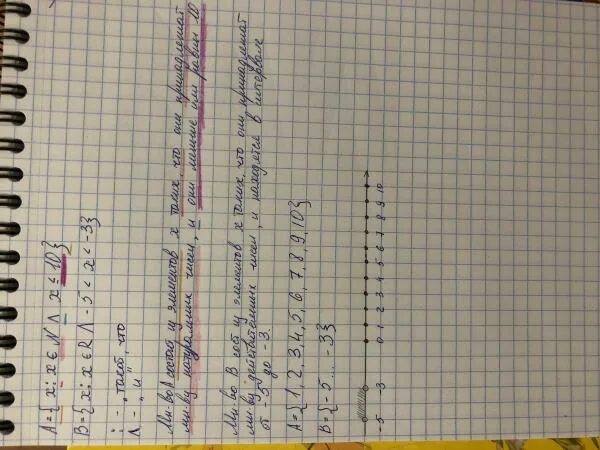 A = { x : x ∈ N ∧ x ≤ 10 }
B = { x : x ∈ R ∧ -5 < x < -3 }
: - „такой, что
∧ - „и"
Мн-во A состоит из элементов x таких, что они принадлежат
мн-ву натуральных чисел, и они меньше или равны 10
Мн-во B сост из элементов x таких, что они принадлежат
мн-ву действительных чисел, и находятся в интервале
от -5 до -3.
A = { 1, 2, 3, 4, 5, 6, 7, 8, 9, 10 }
B = { -5 ... -3 }
-5 -3 0 1 2 3 4 5 6 7 8 9 10